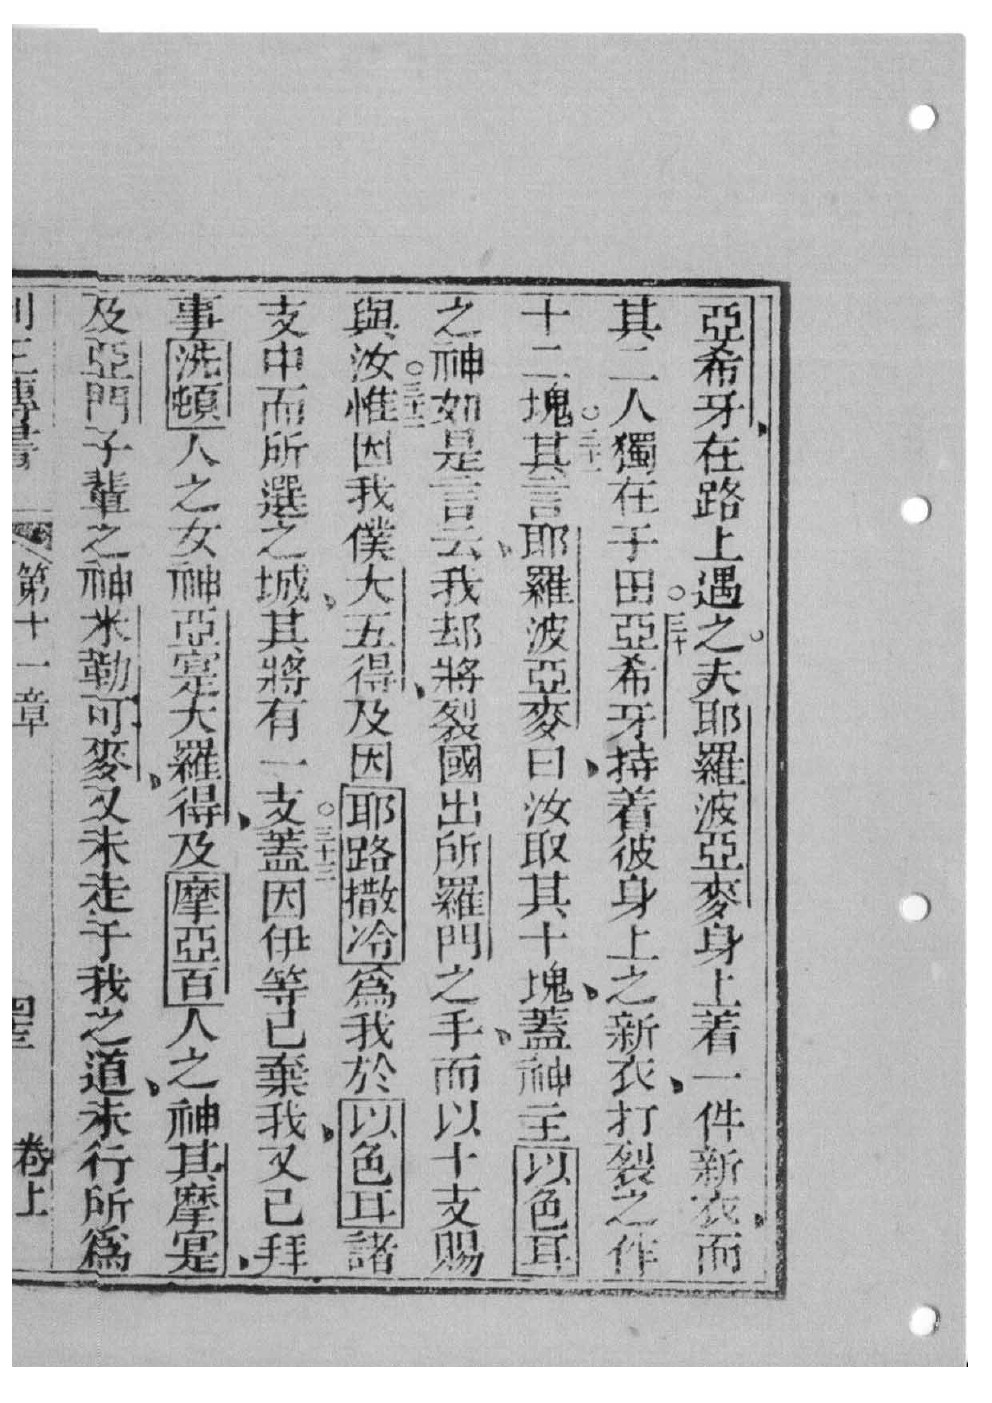 亞希牙在路上遇之夫耶羅波亞麥身上着一件新衣而
其二人獨在于田○三十亞希牙持着彼身上之新衣打裂之作
十二塊○三十一其言耶羅波亞麥曰汝取其十塊蓋神主以色耳
之神如是言云我却將裂國出所羅門之手而以十支賜
與汝○三十二惟因我僕大五得及因耶路撒冷爲我於以色耳諸
支中而所選之城其將有一支○三十三蓋因伊等已棄我又已拜
事洗頓人之女神亞寔大羅得及摩亞百人之神其摩寔
及亞門子輩之神米勒可麥又未走于我之道未行所爲
列王傳書 第十一章 卷上